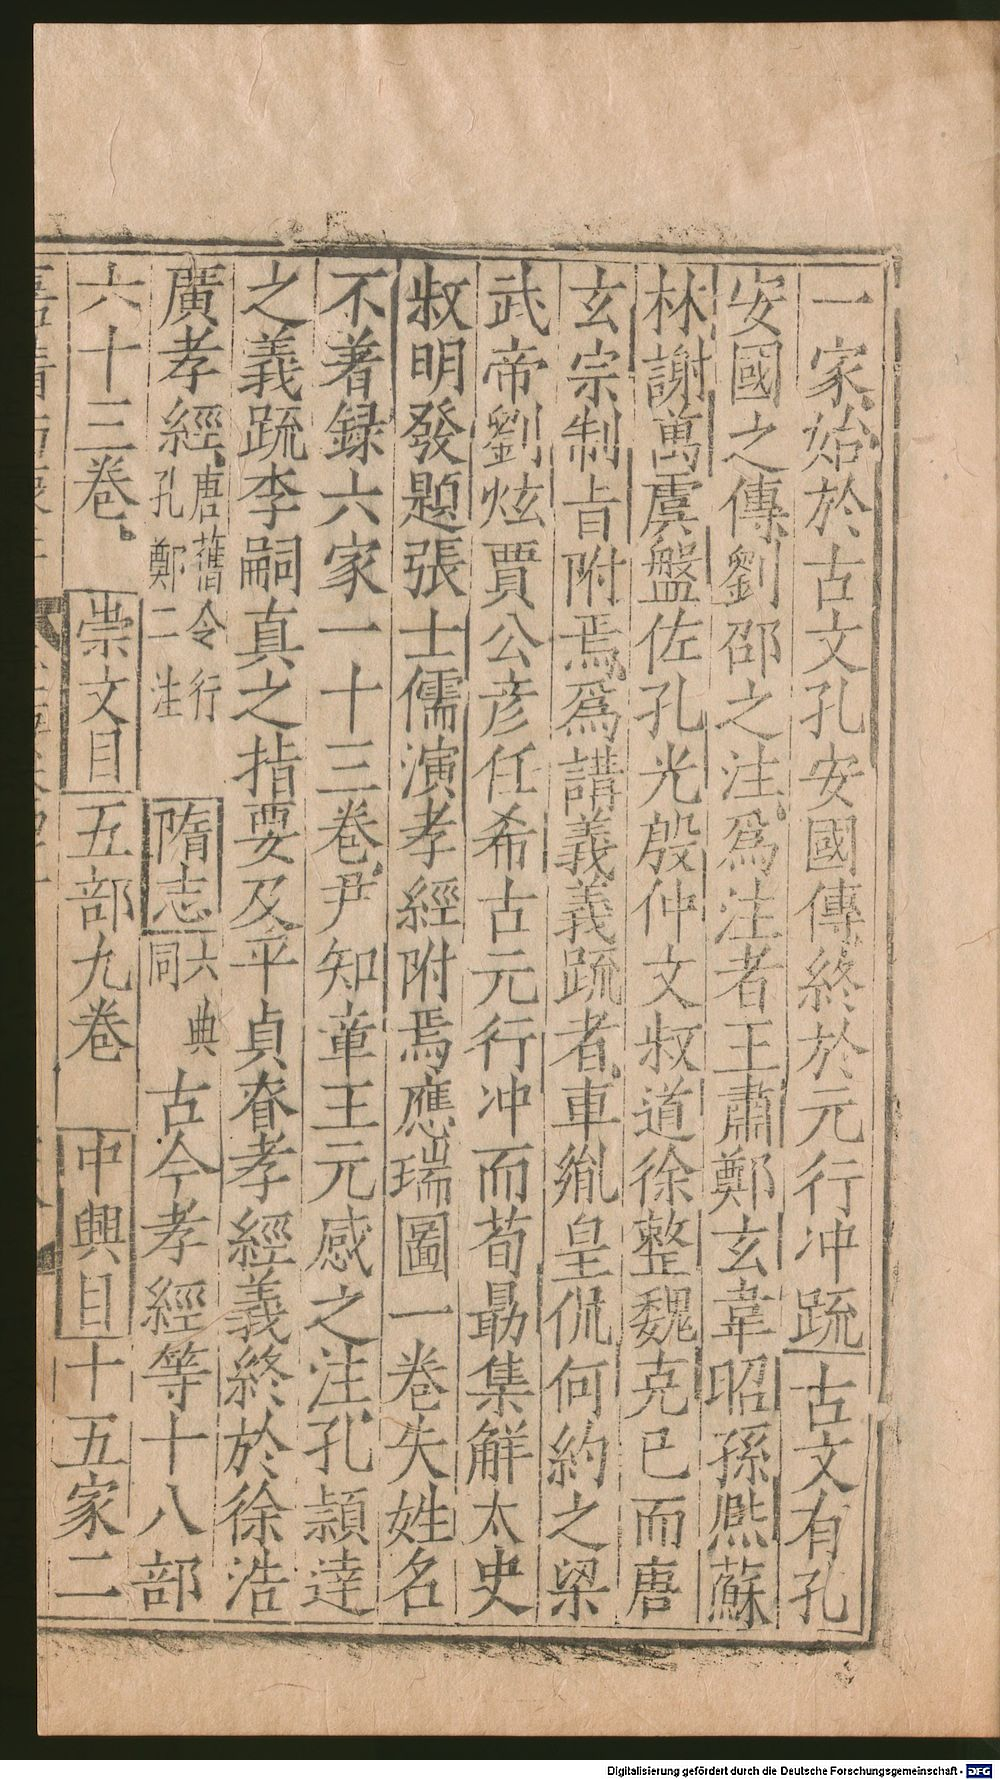 一家始於古文孔安國傳終於元行冲疏古文有孔
安國之傳劉邵之注爲注者王肅鄭玄韋昭孫熈蘇
林謝萬虞盤佐孔光殷仲文叔道徐整魏克已而唐
玄宗制旨附焉爲講義義疏者車胤皇侃何約之梁
武帝劉炫賈公彦任希古元行冲而荀勗集解太史
叔明發題張士儒演孝經附焉應瑞圖一卷失姓名
不著録六家一十三卷尹知章王元感之注孔頴逹
之義疏李嗣真之指要及平貞眘孝經義終於徐浩
廣孝經唐舊令行孔鄭二注 隋志六典同 古今孝經等十八部
六十三卷 崇文目五部九卷 中興目十五家二
Digitalisierung gefördert durch die Deutsche Forschungsgemeinschaft - DFG